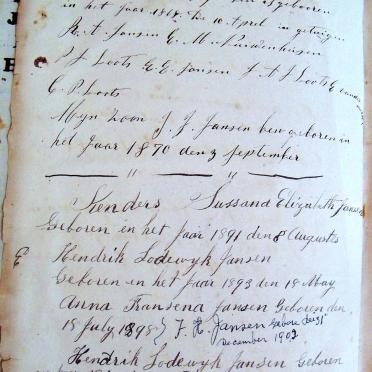 geboren
in het Jaar 1868 den 10 April in getuigen
A. t. Jansen E. M. Nieuwenhuisen
P J Loots E. E. Jansen J A J Loots E
C. P. Loots
Myn Zoon J. J. Jansen ben geboren in
het Jaar 1870 den 3 September
Kenders Sussand Elizabeth Jansen
Geboren en het Jaar 1891 den 8 Augustes
E Hendrik Lodewyk Jansen
Geboren en het Jaar 1893 den 18 May
Anna Fransena Jansen Geboren den
18 July 1898 } F. H. Jansen Gebore den 31
December 1902
Hendrik Lodewyk Jansen Geboren